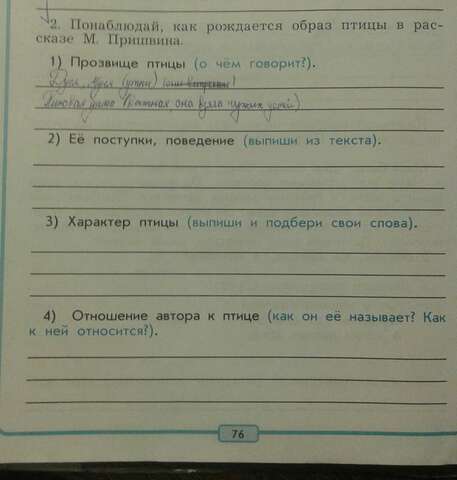 2. Понаблюдай, как рождается образ птицы в рас-
сказе М. Пришвина.
1) Прозвище птицы (о чём говорит?).
Дуся, Муся (утки)
она взяла чужих утят)
2) Её поступки, поведение (выпиши из текста).
3) Характер птицы (выпиши и подбери свои слова).
4) Отношение автора к птице (как он её называет? Как
к ней относится?).
76